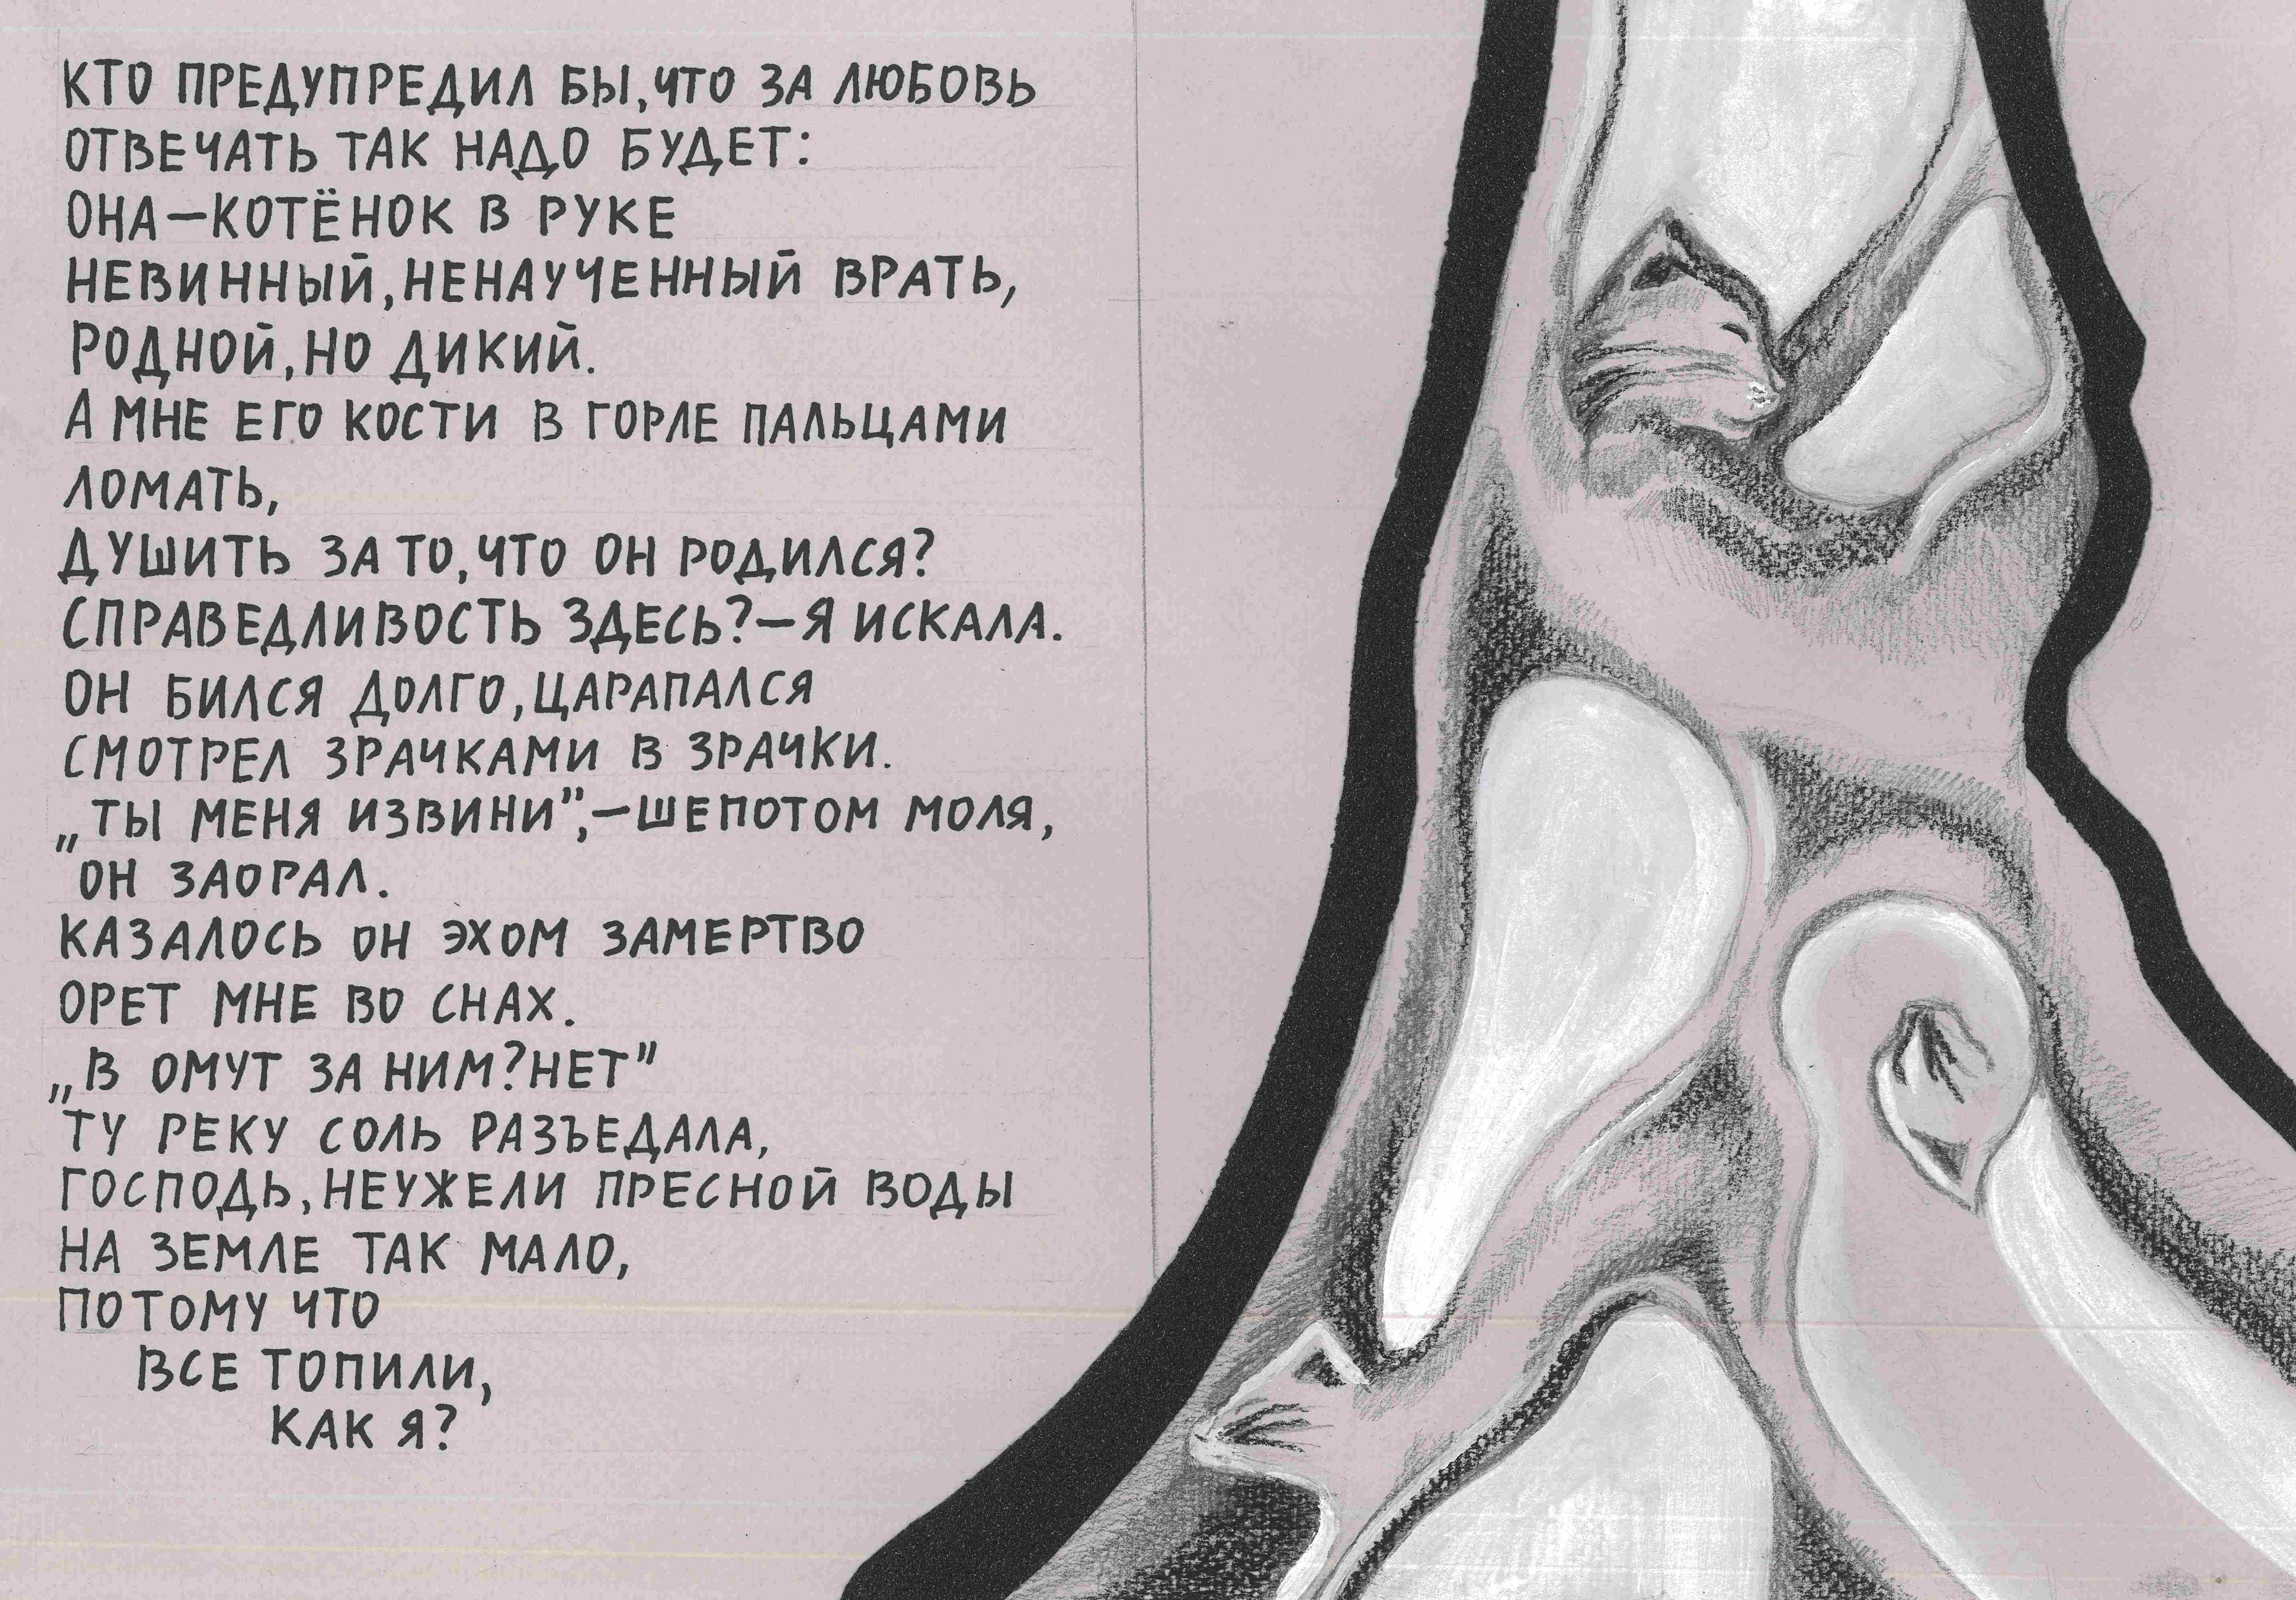 КТО ПРЕДУПРЕДИЛ БЫ,ЧТО ЗА ЛЮБОВЬ
ОТВЕЧАТЬ ТАК НАДО БУДЕТ:
ОНА—КОТЁНОК В РУКЕ
НЕВИННЫЙ,НЕНАУЧЕННЫЙ ВРАТЬ,
РОДНОЙ,НО ДИКИЙ.
А МНЕ ЕГО КОСТИ В ГОРЛЕ ПАЛЬЦАМИ
ЛОМАТЬ,
ДУШИТЬ ЗА ТО,ЧТО ОН РОДИЛСЯ?
СПРАВЕДЛИВОСТЬ ЗДЕСЬ?—Я ИСКАЛА.
ОН БИЛСЯ ДОЛГО,ЦАРАПАЛСЯ
СМОТРЕЛ ЗРАЧКАМИ В ЗРАЧКИ.
„ТЫ МЕНЯ ИЗВИНИ”,—ШЕПОТОМ МОЛЯ,
ОН ЗАОРАЛ.
КАЗАЛОСЬ ОН ЭХОМ ЗАМЕРТВО
ОРЕТ МНЕ ВО СНАХ.
„В ОМУТ ЗА НИМ?НЕТ”
ТУ РЕКУ СОЛЬ РАЗЪЕДАЛА,
ГОСПОДЬ,НЕУЖЕЛИ ПРЕСНОЙ ВОДЫ
НА ЗЕМЛЕ ТАК МАЛО,
ПОТОМУ ЧТО
ВСЕ ТОПИЛИ,
КАК Я?